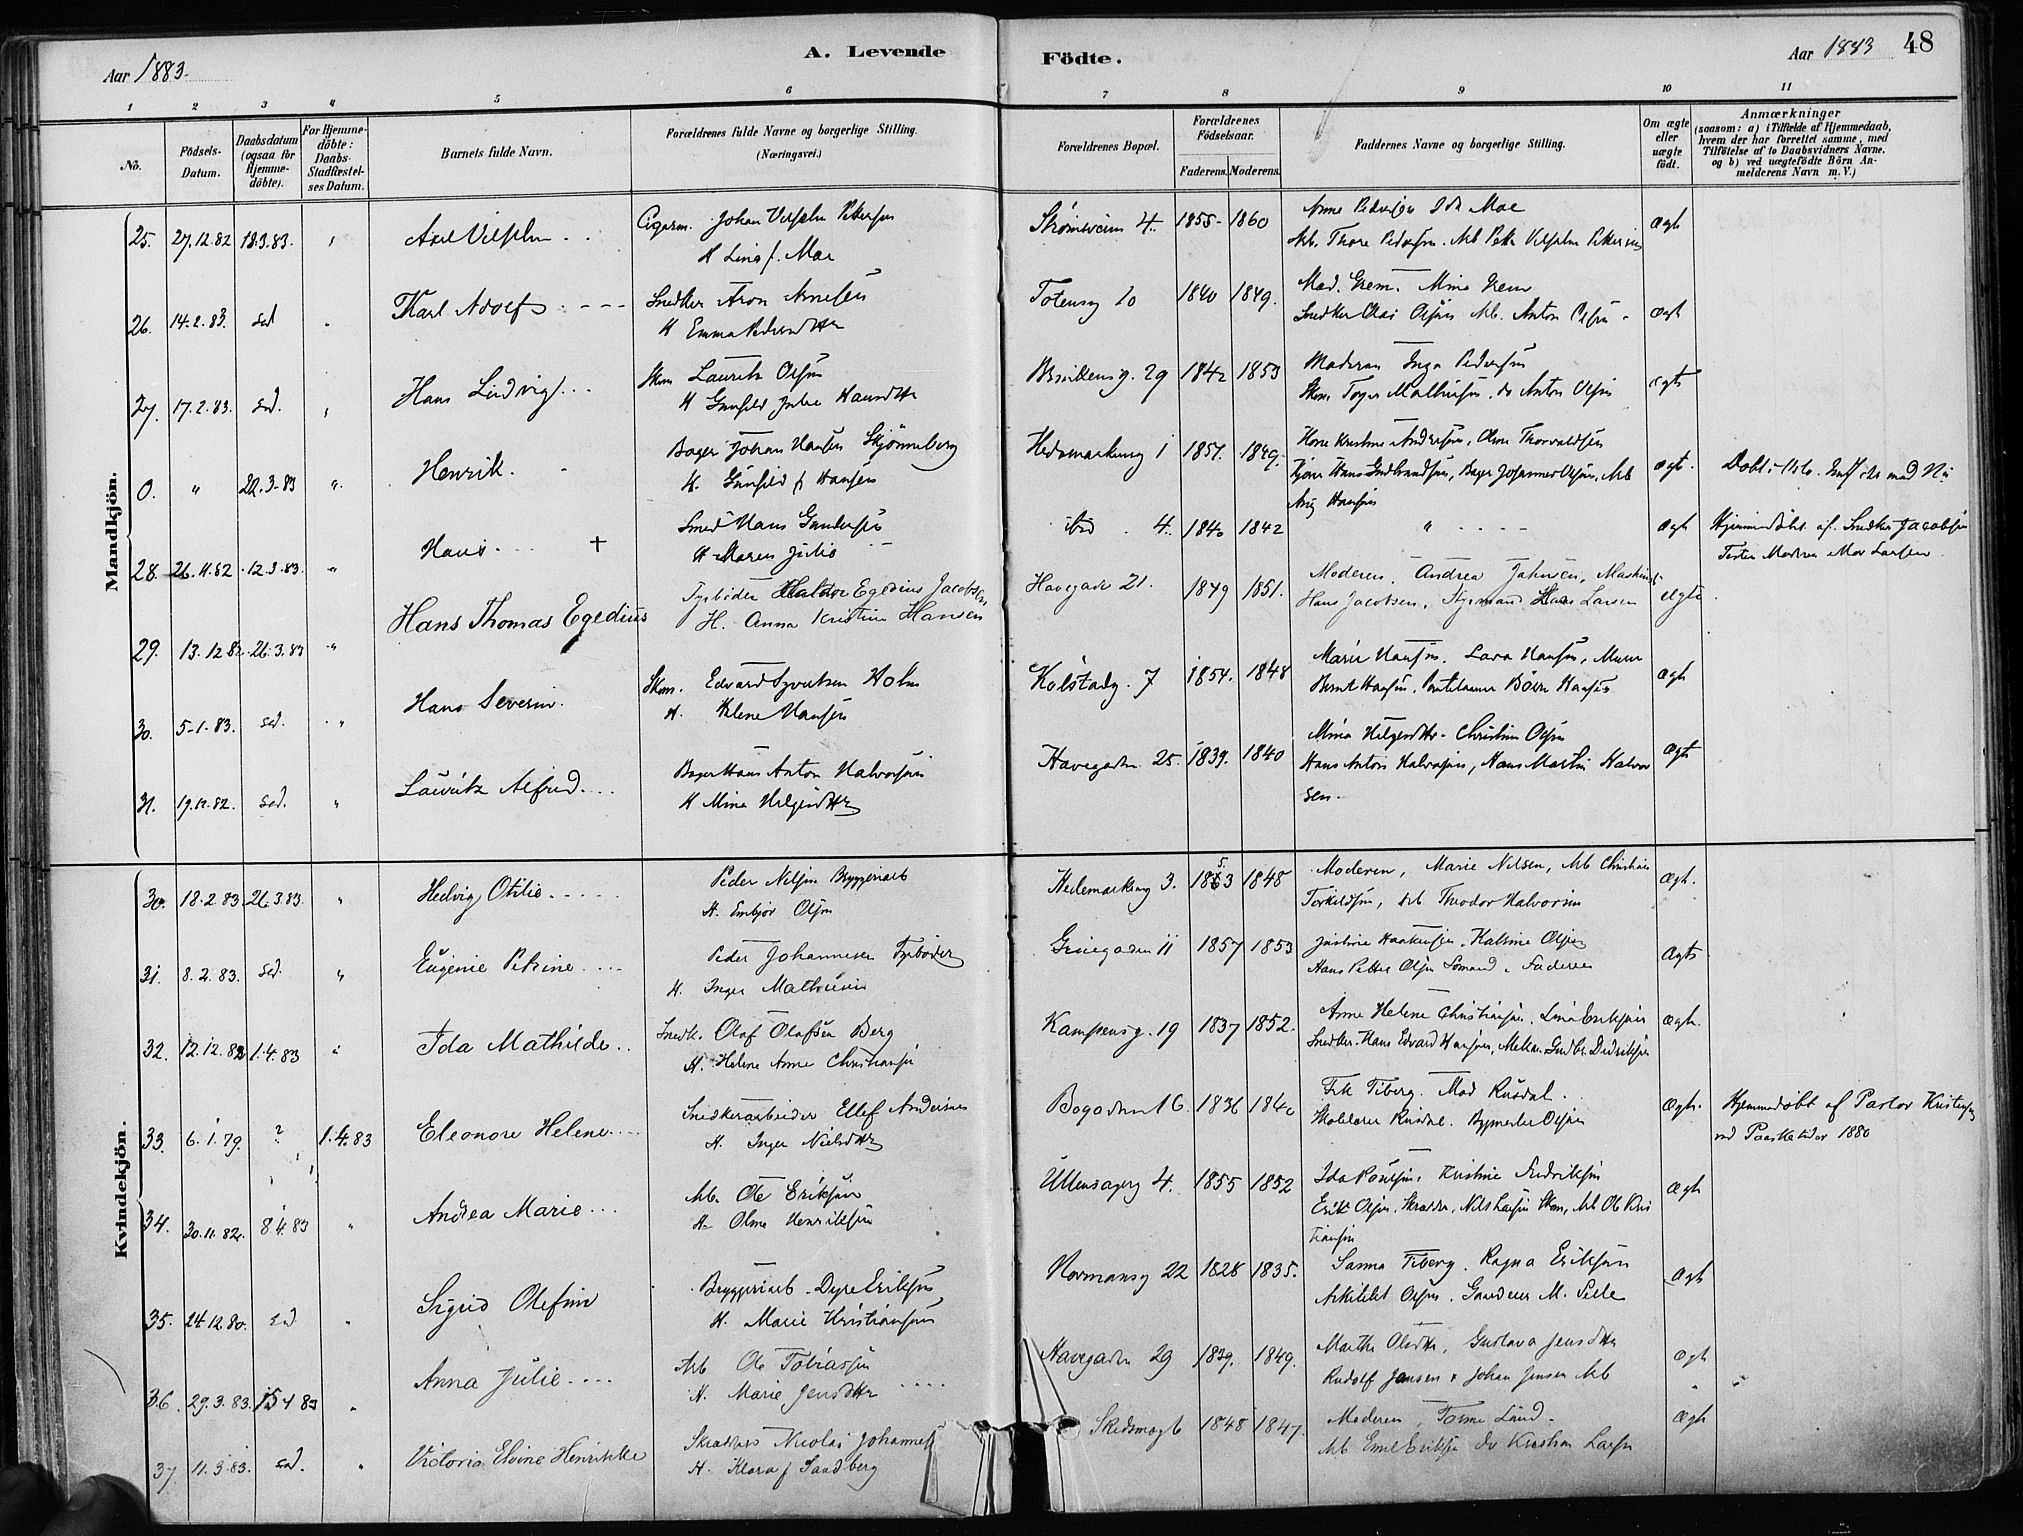 Aar 1883.
A. Levende Födte.
Aar 1883
48
1 2 3 4 5 6 7 8 9 10 11
No.
Födsels-Datum.
Daabsdatum (ogsaa for Hjemme-döbte).
For Hjemme-döbte: Daabs-Stadfæstel-ses Datum.
Barnets fulde Navn.
Forældrenes fulde Navne og borgerlige Stilling. (Næringsvei.)
Forældrenes Bopæl.
Forældrenes Födselsaar.
Faderens. Moderens.
Faddernes Navne og borgerlige Stilling.
Om ægte eller uægte födt.
Anmærkninger
(saasom: a) i Tilfælde af Hjemmedaab, hvem der har forrettet samme, med Tilföielse af to Daabsvidners Navne, og b) ved uægtefödte Börn An-melderens Navn m. V.)
Mandkjön.
25. 27.12.82 18.3.83. Axel Vilhelm Cigarm. Johan Vilhelm Petersen
H Lina f. Moe
Strømsveien 4. 1855 1860 Anne Pedersen Ida Moe
Arb. Thore Pedersen. Arb Petter Vilhelm Petersen ægt
26. 14.2.83. sad Karl Adolf Snedker Aron Arnesen
H Emma Pedersdtter
Totensg 20 1840 1849. Mad. Grem. Mina Grem
Snedker Olai Olsen Arb. Anton Olsen ægt
27. 17.2.83. sad. Hans Ludvig Skom Lauritz Olsen
H Gunhild Julie
29 1842 1853 Moderen Inga Pedersen
Skom Anton Olsen ægt
0. " 22.3.83 " Henrik. Bager Johan Hansen Skjønneberg
H. Gunhild f Hansen
Hedemarkensg 1 1857. 1849. Kone Kristine Andersen, Oline Thorvaldsen
Hans Gulbrandsen, Bager Johannes Olsen, Arb
Hansen ægt. Døbt i Oslo.
28. 26.11.82 12.3.83. " Hans + Smed Hans Gundersen
H Maren Julie
ibid 4. 1840 1842 " ægt Hjemmedøbt af Snedker Jacobsen
Larsen
29. 13.12.82. 26.3.83 " Hans Thomas Egedius Fyrbøder Haldor Egedius Jacobsen
H. Anna Kristine Hansen
Havegade 21. 1849 1851. Moderen, Andrea Jahnsen, Maskinist
Hans Jacobsen, Styrmand Lars Larsen ægte
30. 5-1.83. sad. " Hans Severin. Skom. Edvard Syvertsen Holm
H. Helene Hansen
Kolstadg. 7 1854. 1848 Marie Hansen. Lara Hansen, Murer
Bernt Hansen. Hansen ægt
31. 19.12.82. sad. " Lauritz Alfred Bager Hans Anton Halvorsen
H Mina Helgesdtter
Havegaden 25. 1839. 1840 Mina Helgesdtter Christine Olsen
Hans Anton Halvorsen, Hans Martin Halvor
sen. ægt
Kvindekjön.
30. 18.2.83. 26.3.83. " Hedvig Otilie Peder Nilsen Bryggeriarb
H. Embjør Olsen
Hedemarkensg 3. 1853 1848 Moderen, Marie Nilsen, Arb Christian
Torkildsen, Arb Theodor Halvorsen ægt.
31. 8.2.83. sad. " Eugenie Petrine Peder Johannesen Fyrbøder
H. Inger Mathisen
Grüegaden 11 1857 1853 Justine Haakensen. Katrine Olsen
Hans Petter Olsen Sømand. Faderen ægt
32. 12.12.82 1.4.83 " Ida Mathilde Snedk. Olaf Olafsen Berg
H. Helene Anne Christiansen
Kampensg. 19 1837 1852. Anne Helene Christiansen. Lina Eriksen
Snedker Hans Edvard Hansen, Gulbr. Didriksen ægt.
33. 6.1.79. ? 1.4.83 Eleonore Helene Snedkerarbeider Ellef Andersen
H. Inger Nielsdtter
Bogaden 16 1836 1840 Frk Tiberg. Mad Rusdal.
Olsen ægt. Hjemmedøbt af Pastor Kristensen
ved Paasketider 1880
34. 30.11.82. 8.4.83 " Andrea Marie Arb. Ole Eriksen
H. Oline Henriksen
Ullensagerg 4. 1855 1852 Ida Poulsen, Kristine Fredriksen
Erik Olsen, Skrædder, Nils Larsen Skom, Arb Ole Kris
tiansen ægt
35. 24.12.80. sad " Sigrid Olefine Bryggeriarb. Dyre Eriksen
H. Marie Kristiansen
Normansg 22 1828 1835. Sanna Tiberg. Ragna Eriksen
Arkitekt Olsen. M. Selle ægt
36. 29.3.83. 15 4 83 " Anna Julie Arb Ole Tobiassen
H. Marie Jensdtter
Havegaden 29 1839. 1849. Marthe Olsdtter, Gustava Jensdtter
Rudolf Jensen & Johan Jensen Arb ægt
37 11.3.83. sad. " Victoria Elvine Henrikke Skrædder Nicolai Johannes
H. Klara f Sandberg
Skedsmogt 1848 1847. Moderen, Lund.
Arb Emil Eriksen do Kristian Larsen ægt